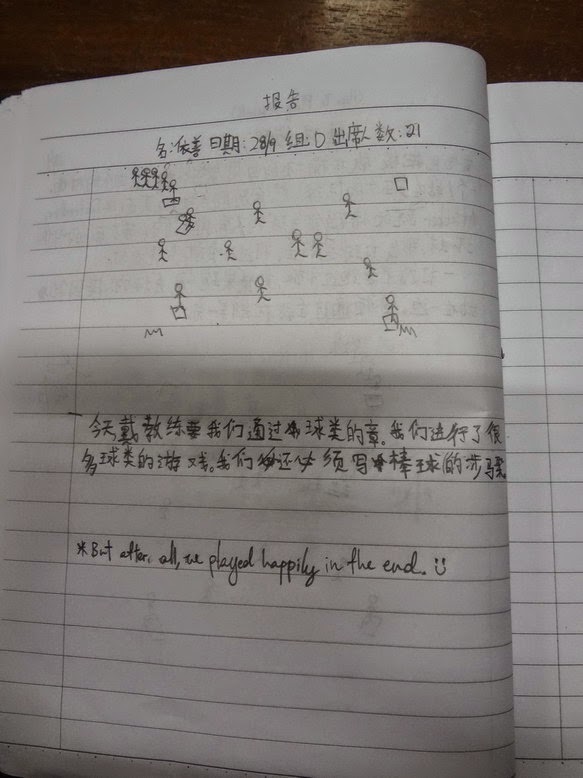 报告
名:依善 日期:28/9 组:D 出席人数:21
今天戴教练要我们通过球类的章。我们进行了很
多球类的游戏。我们还必须写棒球的步骤
*But after, all, we played happily in the end.